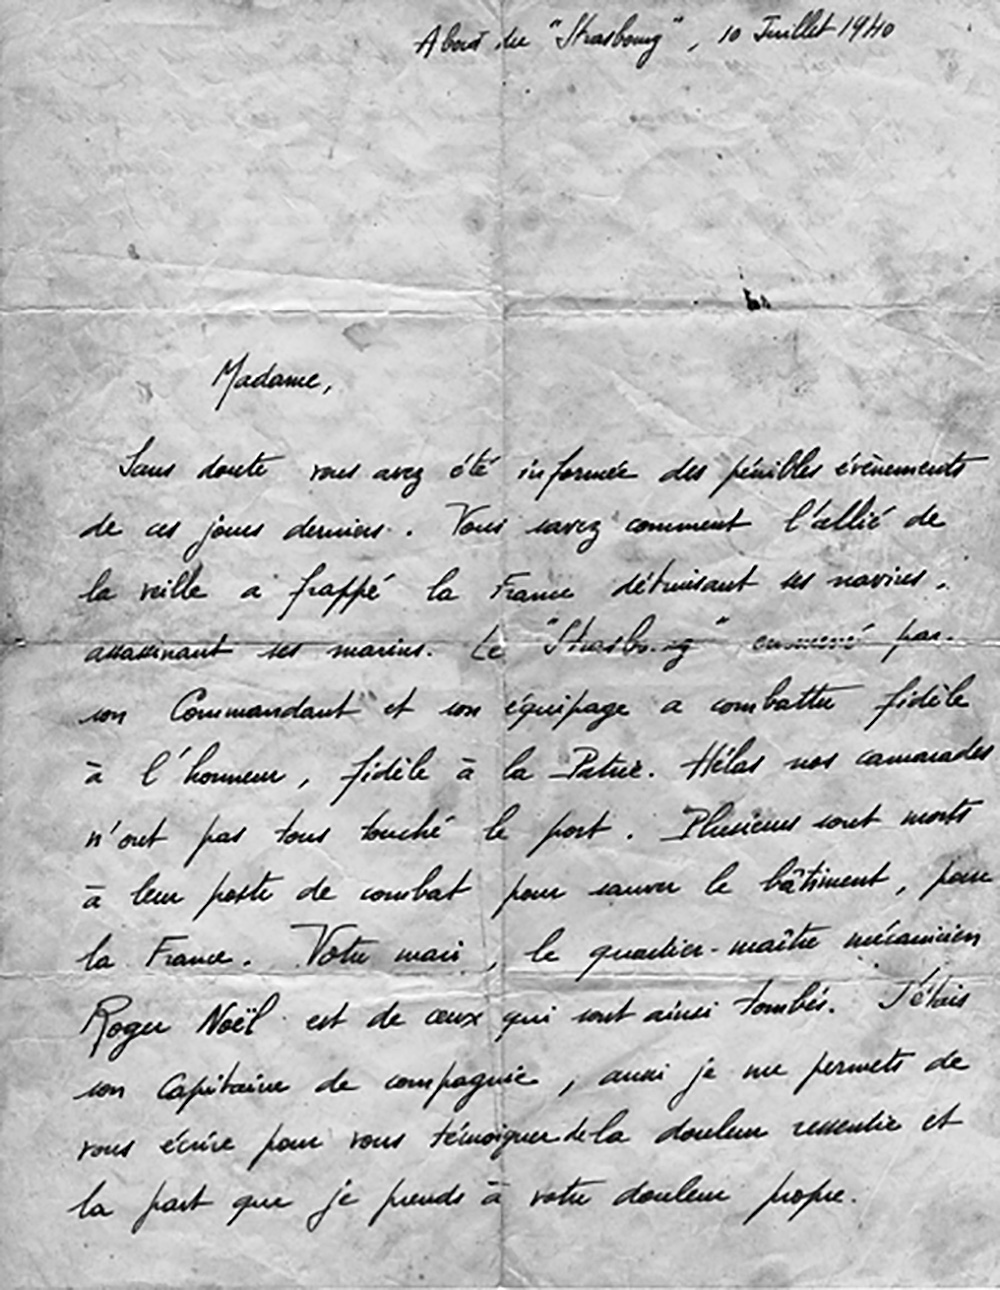 A bord du "Strasbourg", 10 Juillet 1940
Madame,
Sans doute vous avez été informée des pénibles évènements
de ces jours derniers. Vous savez comment l'allié de
la veille a frappé la France détruisant ses navires,
assassinant ses marins. Le "Strasbourg" emmené par
son Commandant et son équipage a combattu fidèle
à l'honneur, fidèle à la Patrie. Hélas nos camarades
n'ont pas tous touché le port. Plusieurs sont morts
à leur poste de combat pour sauver le bâtiment, pour
la France. Votre mari, le quartier-maître mécanicien
Roger Noël est de ceux qui sont ainsi tombés. J'étais
son Capitaine de compagnie, aussi je me permets de
vous écrire pour vous témoigner de la douleur ressentie et
la part que je prends à votre douleur propre.